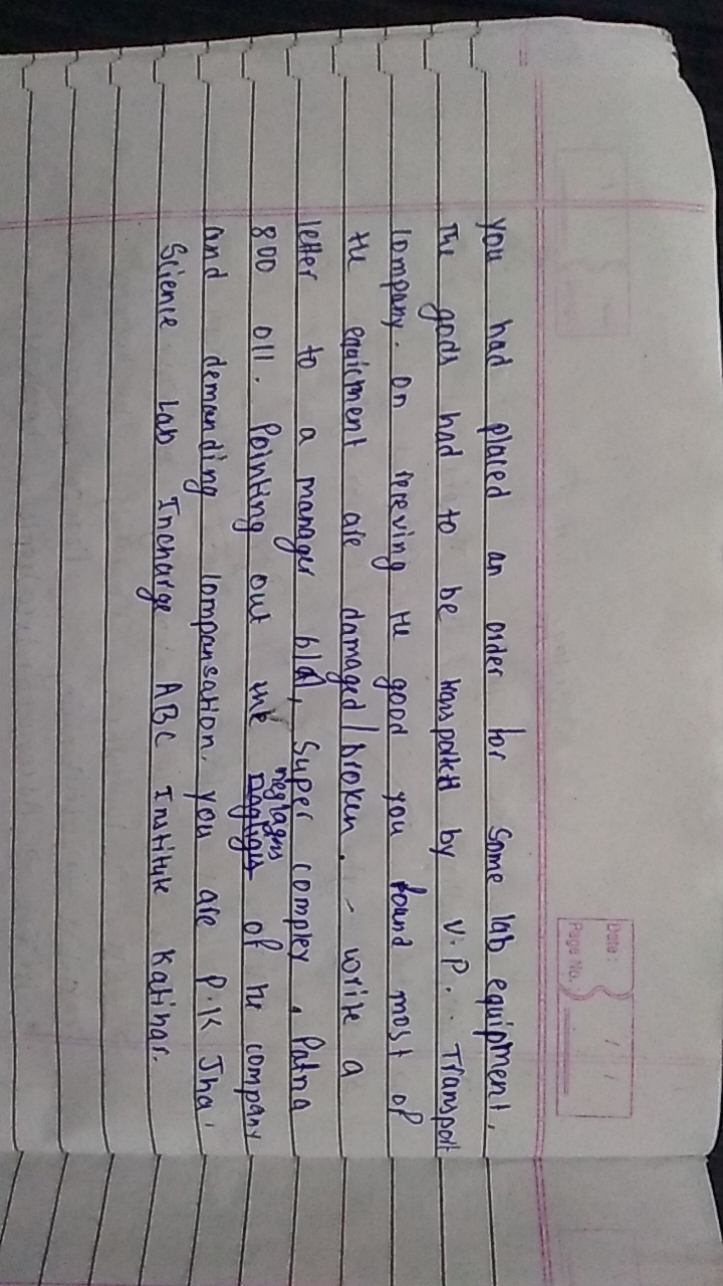 Date :
Page No.
you had placed an order for some lab equipment,
The gods had to be by V.P.. Transport
Company. On receving the good you found most of
the equicment are damaged/broken. - write a
letter to a manager Super compley, Patna
800 011. Pointing out the neglagns of the company
and demanding compansation. you are P.K Jha,
Science Lab Incharge ABC Institute Katihar.